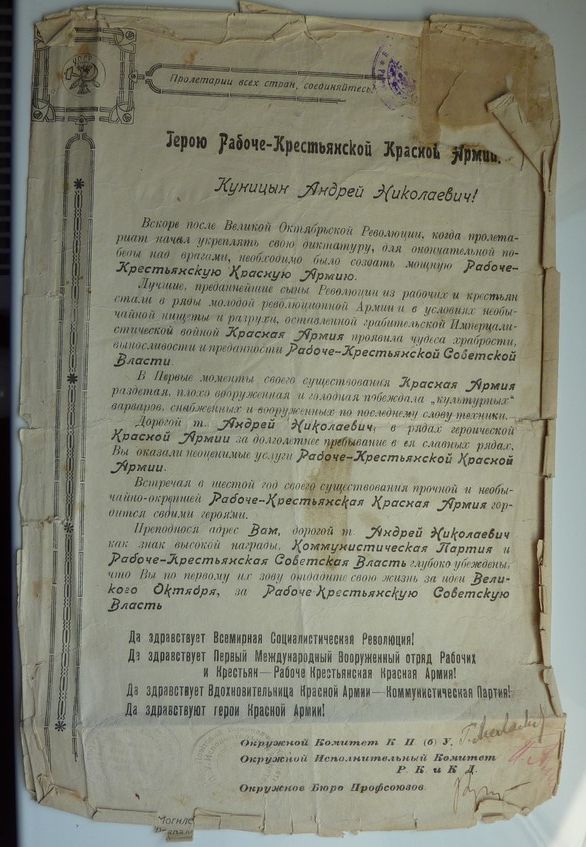 УССР
Пролетарии всех стран, соединяйтесь!
Герою Рабоче-Крестьянской Красной Армии.
Куницын Андрей Николаевич!
Вскоре после Великой Октябрьской Революции, когда пролета-
риат начал укреплять свою диктатуру, для окончательной по-
беды над врагами, необходимо было создать мощную Рабоче-
Крестьянскую Красную Армию.
Лучшие, преданнейшие сыны Революции из рабочих и крестьян
стали в ряды молодой революционной Армии и в условиях необы-
чайной нищеты и разрухи, оставленной грабительской Империали-
стической войной Красная Армия проявила чудеса храбрости,
выносливости и преданности Рабоче-Крестьянской Советской
Власти.
В Первые моменты своего существования Красная Армия
раздетая, плохо вооруженная и голодная побеждала „культурных"
варваров, снабженных и вооруженных по последнему слову техники.
Дорогой т. Андрей Николаевич, в рядах героической
Красной Армии за долголетнее пребывание в ея славных рядах,
Вы оказали неоценимые услуги Рабоче-Крестьянской Красной
Армии.
Встречая в шестой год своего существования прочной и необы-
чайно-окрепшей Рабоче-Крестьянская Красная Армия гор-
дится своими героями.
Преподнося адрес Вам, дорогой т. Андрей Николаевич
как знак высокой награды, Коммунистическая Партия и
Рабоче-Крестьянская Советская Власть глубоко убеждены,
что Вы по первому их зову отдадите свою жизнь за идеи Вели-
кого Октября, за Рабоче-Крестьянскую Советскую
Власть
Да здравствует Всемирная Социалистическая Революция!
Да здравствует Первый Международный Вооруженный отряд Рабочих
и Крестьян—Рабоче Крестьянская Красная Армия!
Да здравствует Вдохновительница Красной Армии—Коммунистическая Партия!
Да здравствуют герои Красной Армии!
Окружной Комитет К П (б) У.
Окружной Исполнительный Комитет
Р. К и К Д.
Окружное Бюро Профсоюзов.